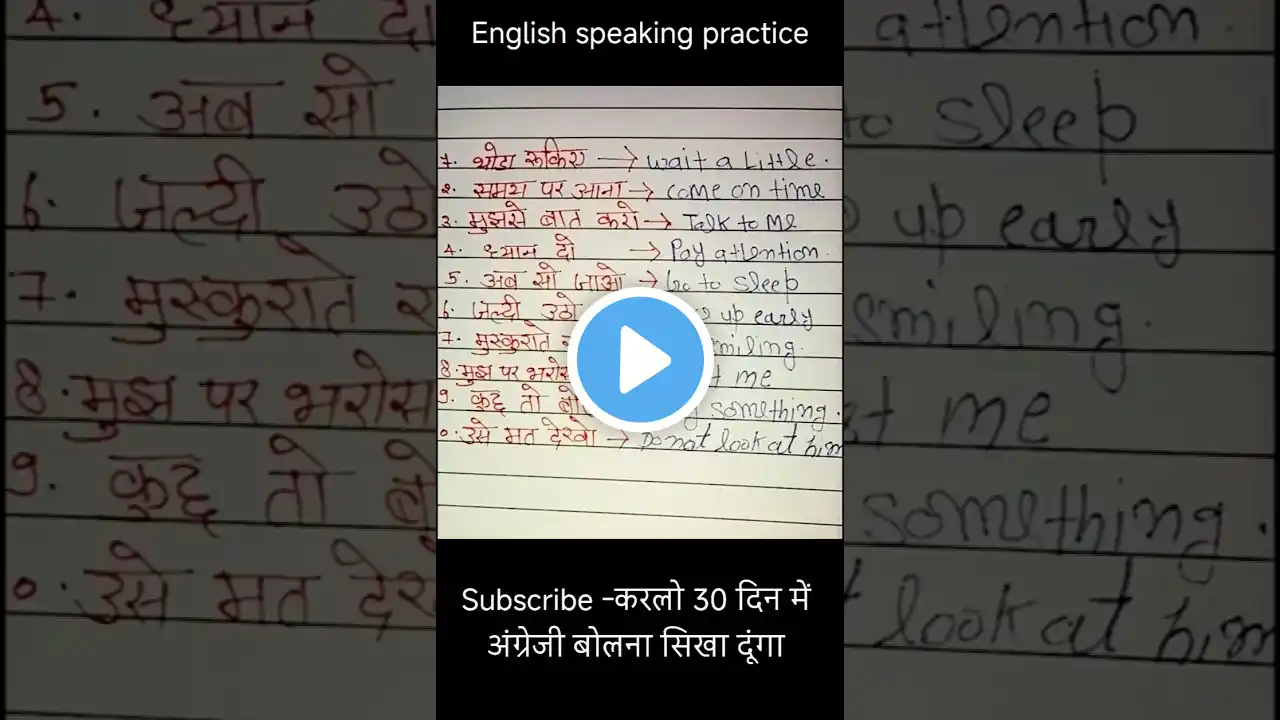 English speaking practice
1. थोडा रुकिए → wait a Little.
2. समय पर आना → come on time
3. मुझसे बात करो → Talk to Me
4. ध्यान दो → Pay attention.
5. अब सो जाओ → Go to sleep
6. जल्दी उठो up early
7. मुस्कुराते smiling.
8. मुझ पर me
9. कुछ तो something.
0. उसे मत देखो → Do not look at him
Subscribe -करलो 30 दिन में
अंग्रेजी बोलना सिखा दूंगा